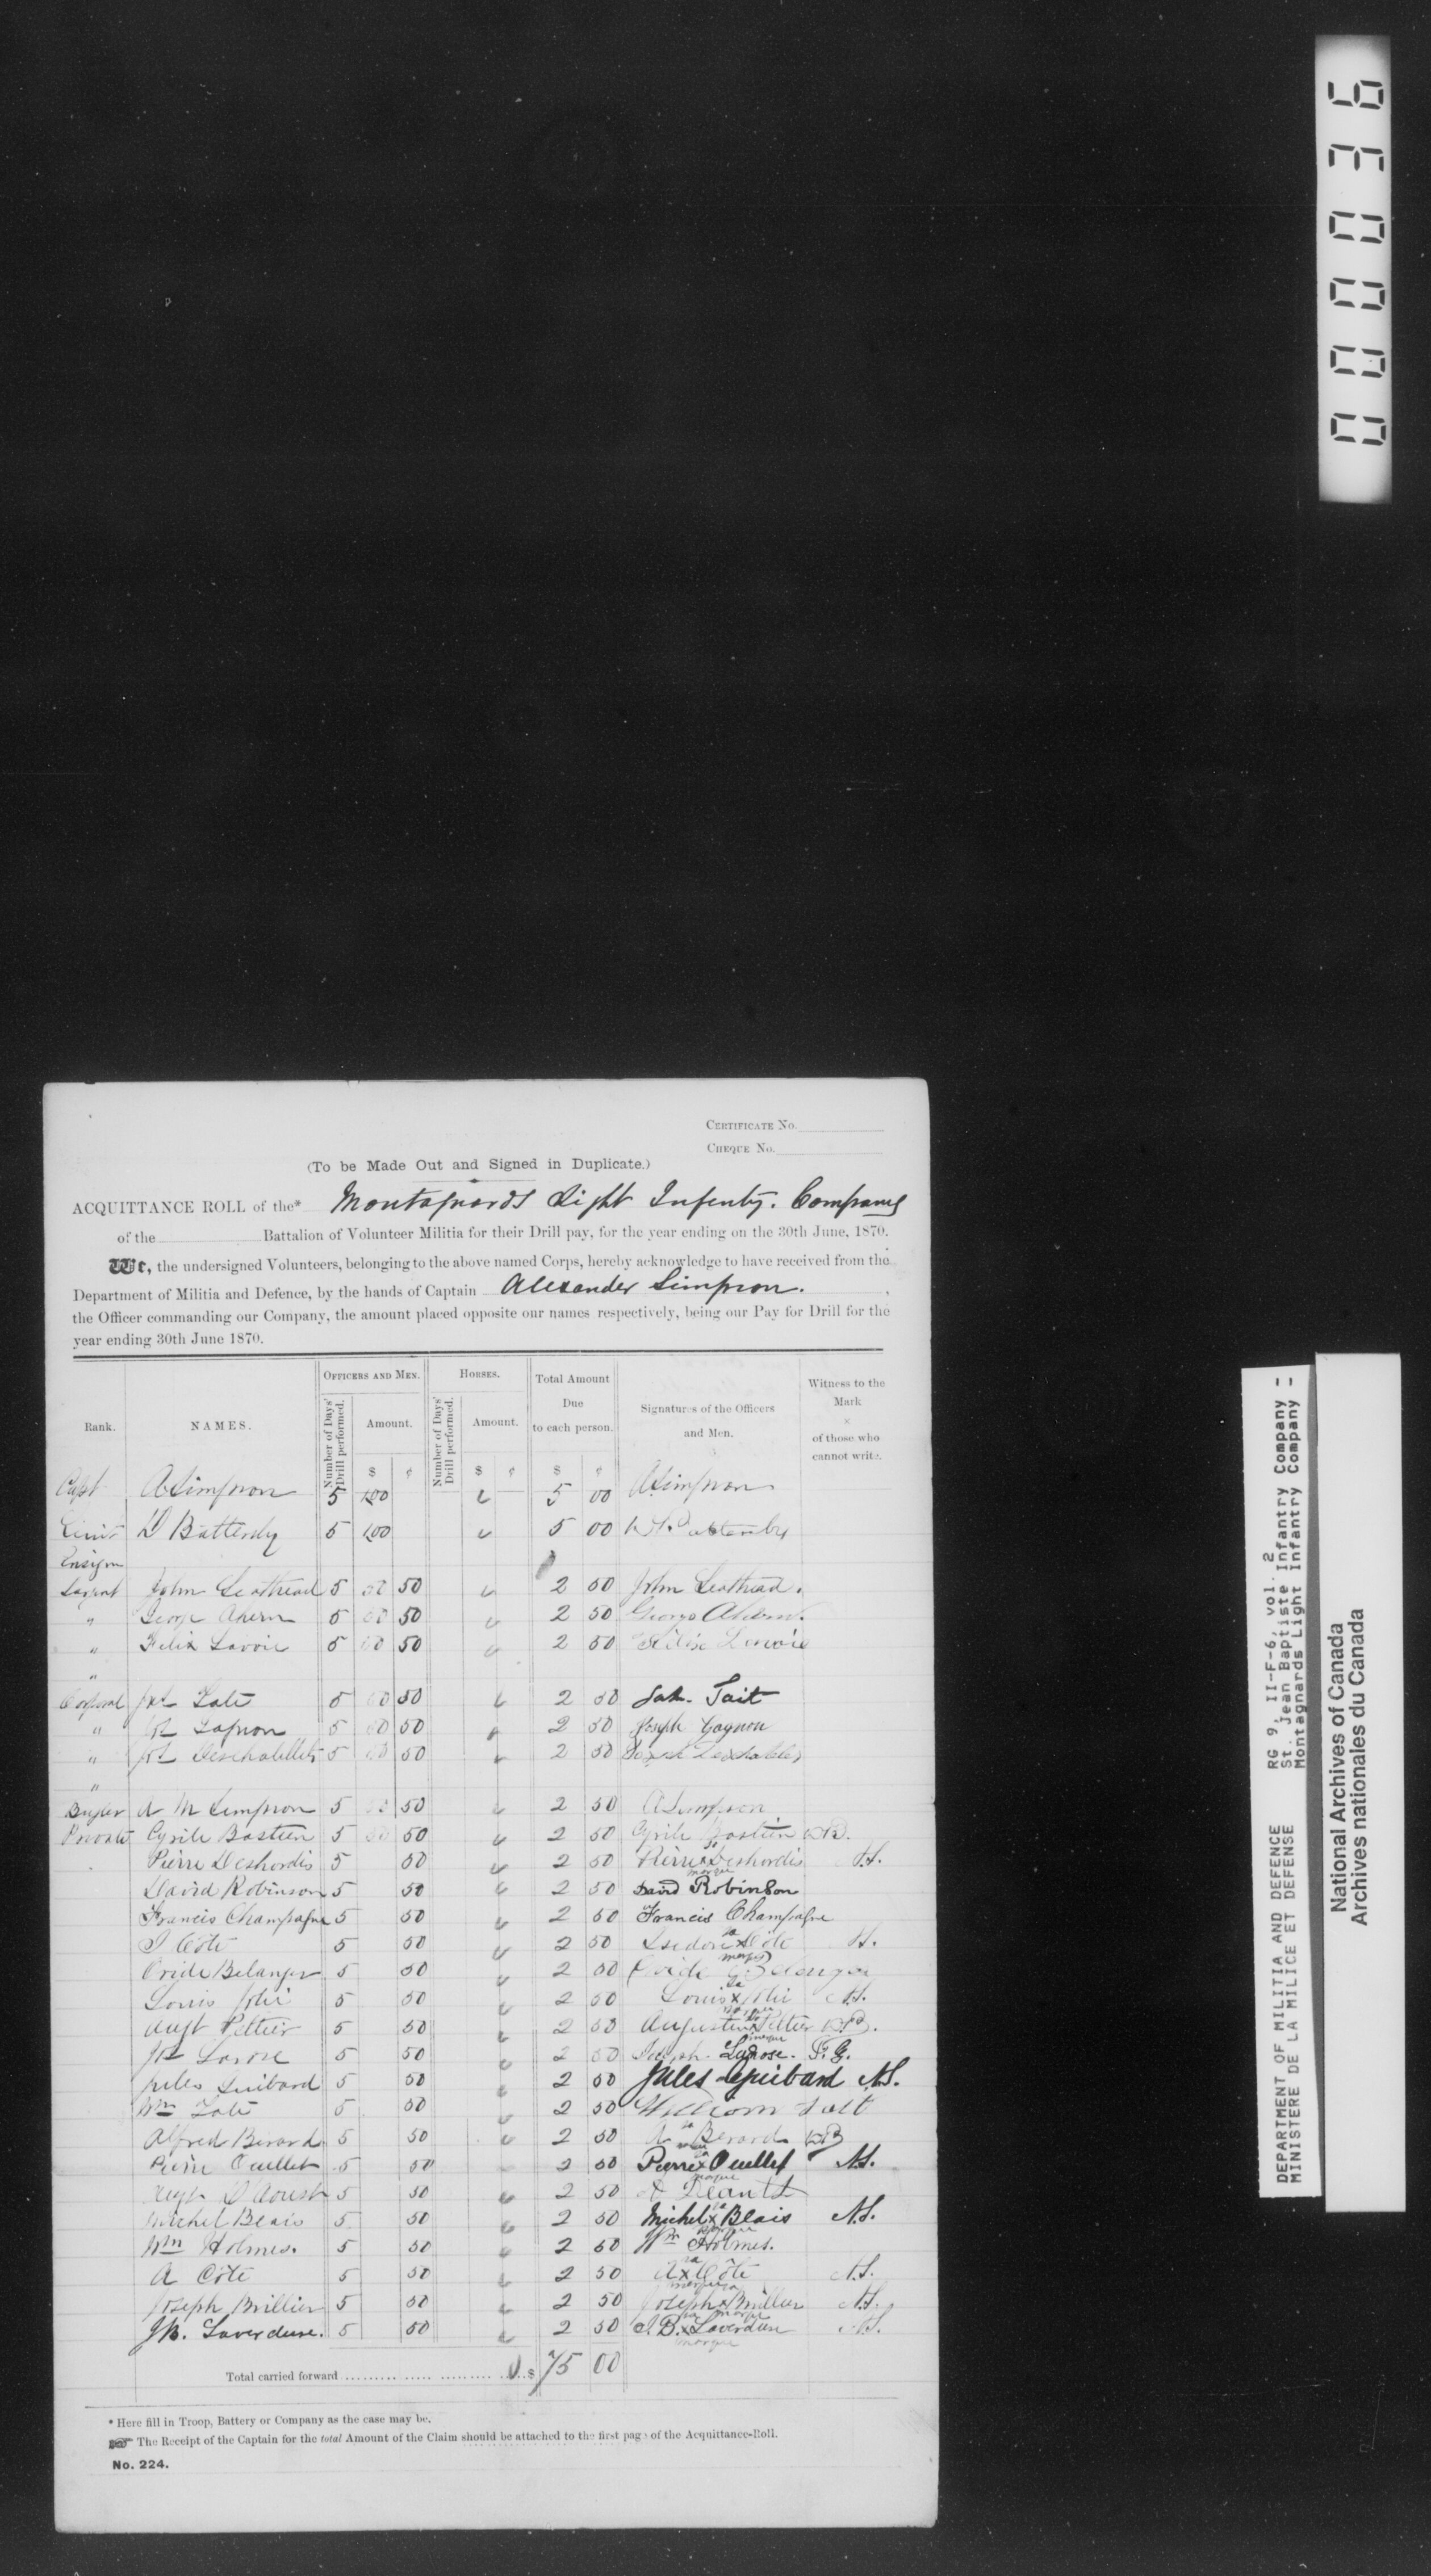 000036
CERTIFICATE No.
CHEQUE No.
(To be Made Out and Signed in Duplicate.)
ACQUITTANCE ROLL of the* Montagnards Light Infenty. Company
of the Battalion of Volunteer Militia for their Drill pay, for the year ending on the 30th June, 1870.
We, the undersigned Volunteers, belonging to the above named Corps, hereby acknowledge to have received from the
Department of Militia and Defence, by the hands of Captain Alexander Simpson.
the Officer commanding our Company, the amount placed opposite our names respectively, being our Pay for Drill for the
year ending 30th June 1870.
Rank. NAMES. OFFICERS AND MEN. HORSES. Total Amount Due to each person. Signatures of the Officers and Men. Witness to the Mark × of those who cannot write.
Number of Days' Drill performed. Amount. Number of Days' Drill performed. Amount.
$ ¢ $ ¢ $ ¢
Capt A Simpson 5 100 5 00 A Simpson
Lieut D Battersby 5 100 5 00
Ensign
Sargent John Leathead 5 50 2 50 John Leathead.
" George Ahern 5 50 2 50 George Ahern.
" Felix Lavoie 5 50 2 50
"
Corporal Jas Tate 5 50 2 50 Jas. Tait
" Jos Gagnon 5 50 2 50 Joseph Gagnon
" Jos Deschatellets 5 50 2 50
"
Bugler A M Simpson 5 50 2 50 A Simpson
Private Cyrile Bastien 5 50 2 50 Cyrile Bastien DB.
Pierre Deshordis 5 50 2 50 Pierre x Deshordis A.S.
sa marque
David Robinson 5 50 2 50 David Robinson
Francis Champagne 5 50 2 50 Francis Champagne
I Côté 5 50 2 50 Isedore x Côté A.S.
sa marque
Ovide Belanger 5 50 2 50 Ovide Belanger
Louis Joli 5 50 2 50 Louis x Joli A.S.
sa marque
Augt Peltier 5 50 2 50 Augustin x Peltier DB.
sa marque
Jos Larose 5 50 2 50 Joseph Larose. F.G.
Jules Guibard 5 50 2 50 Jules Guibard A.S.
Wm Tate 5 50 2 50 William Tait
Alfred Berard 5 50 2 50 A Berard DB
Pierre Ouellet 5 50 2 50 Pierre x Ouellet A.S.
sa marque
Augt D'Aoust 5 50 2 50
Michel Blais 5 50 2 50 Michel x Blais A.S.
sa marque
Wm Holmes. 5 50 2 50 Wm Holmes.
A Côté 5 50 2 50 A x Côté A.S.
sa marque
Joseph Brillier 5 50 2 50 Joseph x Brillier A.S.
sa marque
JB. Laverdure. 5 50 2 50 J.B. x Laverdure A.S.
sa marque
Total carried forward $ 75 00
* Here fill in Troop, Battery or Company as the case may be.
☞ The Receipt of the Captain for the total Amount of the Claim should be attached to the first page of the Acquittance-Roll.
No. 224.
DEPARTMENT OF MILITIA AND DEFENCE RG 9, II-F-6, vol. 2
MINISTERE DE LA MILICE ET DEFENSE St. Jean Baptiste Infantry Company -
Montagnards Light Infantry Company -
National Archives of Canada
Archives nationales du Canada